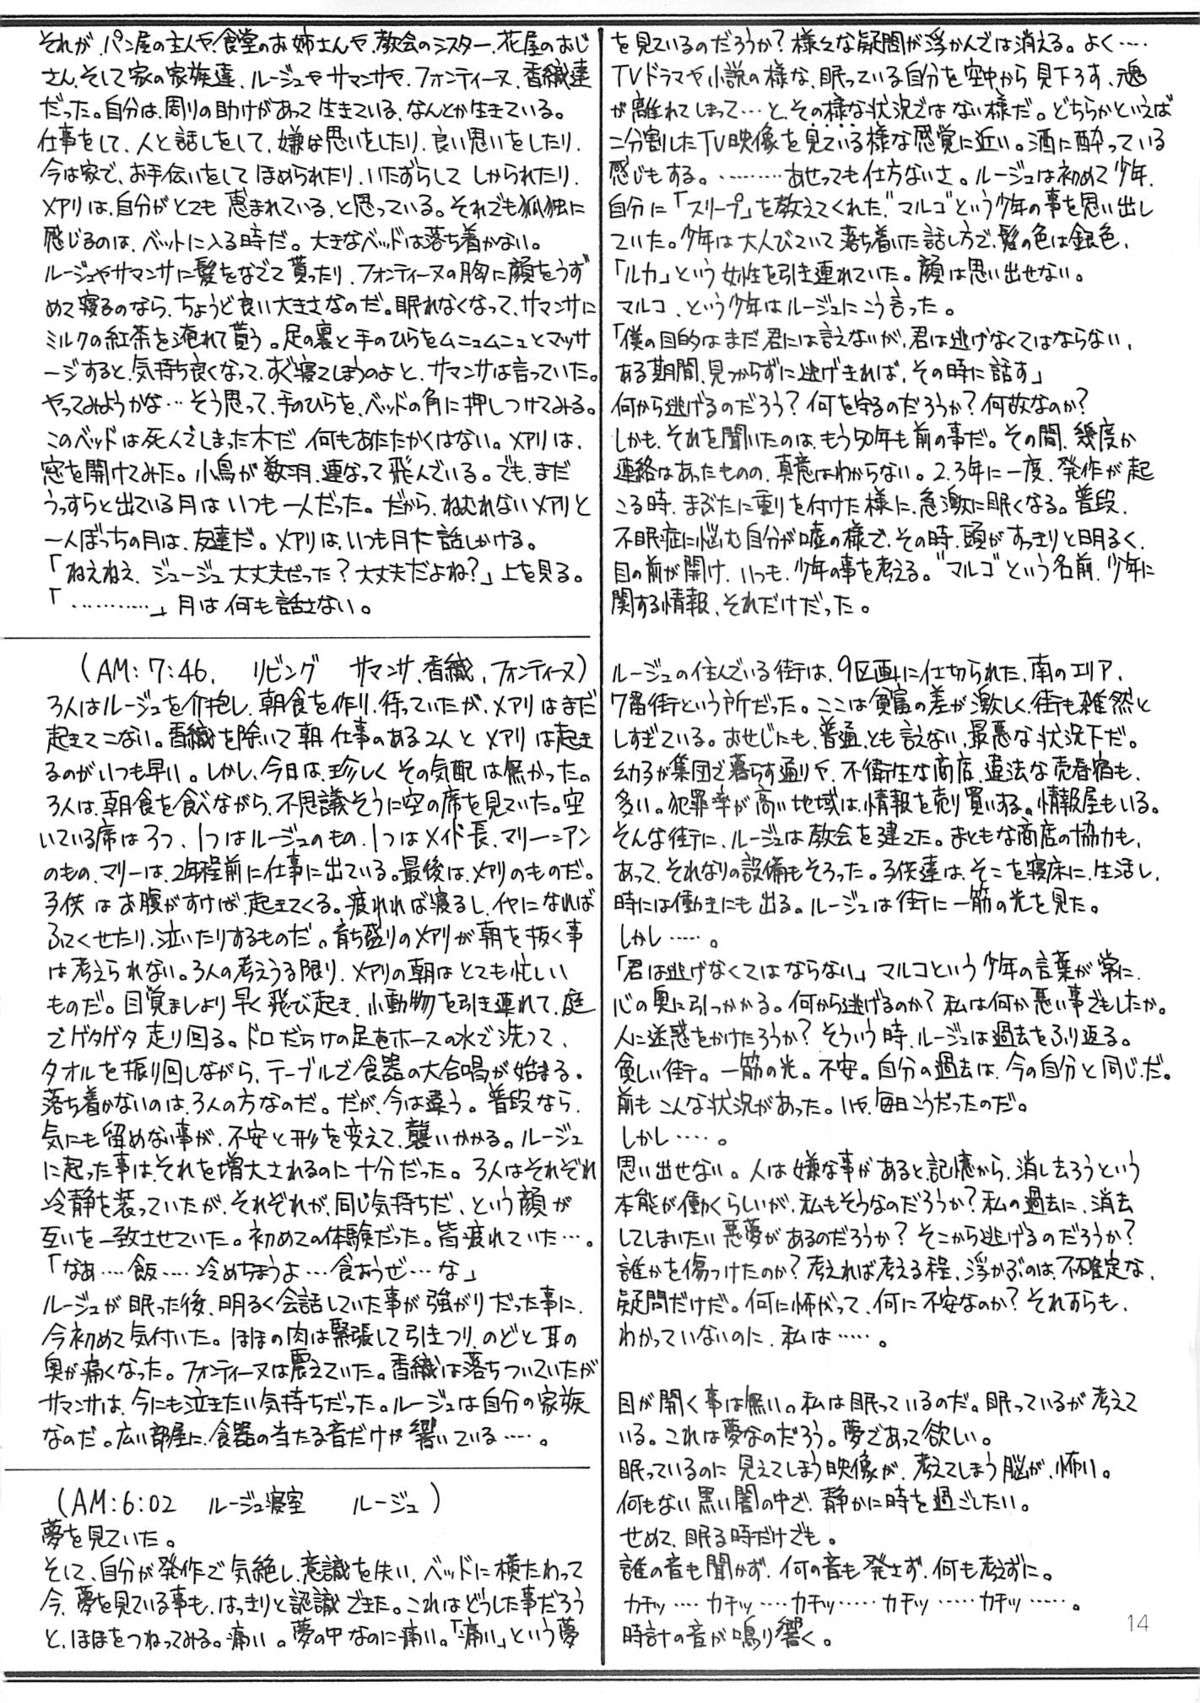 それが、パン屋の主人や、食堂のお姉さんや、教会のシスター、花屋のおじ
さん、そして家の家族達、ルージュやサマンサや、フォンティーヌ、香織達
だった。自分は、周りの助けがあって生きている、なんとか生きている。
仕事をして、人と話しをして、嫌な思いをしたり、良い思いをしたり、
今は家で、お手伝いをしてほめられたり、いたずらしてしかられたり、
メアリは、自分がとても恵まれている、と思っている。それでも孤独に
感じるのは、ベットに入る時だ。大きなベッドは落ち着かない。
ルージュやサマンサに髪をなでて貰ったり、フォンティーヌの胸に顔をうず
めて寝るのなら、ちょうど良い大きさなのだ。眠れなくなって、サマンサに
ミルクの紅茶を淹れて貰う。足の裏と手のひらをムニュムニュとマッサ
ージすると、気持ち良くなって、すぐ寝てしまうのよと、サマンサは言っていた。
やってみようかな…そう思って、手のひらを、ベッドの角に押しつけてみる。
このベッドは死んでしまった木だ 何もあたたかくはない。メアリは、
窓を開けてみた。小鳥が数羽、連なって飛んでいる。でも、まだ
うっすらと出ている月はいつも一人だった。だから、ねむれないメアリと
一人ぼっちの月は、友達だ。メアリは、いつも月に話しかける。
「ねえねえ、ジュージュ大丈夫だった？大丈夫だよね？」上を見る。
「…………」月は何も話さない。
(AM:7:46、 リビング サマンサ、香織、フォンティーヌ)
3人はルージュを介抱し、朝食を作り、待っていたが、メアリはまだ
起きてこない。香織を除いて朝仕事のある2人とメアリは起き
るのがいつも早い。しかし、今日は、珍しくその気配は無かった。
3人は、朝食を食べながら、不思議そうに空の席を見ていた。空
いている席は3つ、1つはルージュのもの、1つはメイド長、マリー＝アン
のもの、マリーは、2年程前に仕事に出ている。最後は、メアリのものだ。
子供はお腹がすけば、起きてくる。疲れれば寝るし、イヤになれば
ふてくせたり、泣いたりするものだ。育ち盛りのメアリが朝を抜く事
は考えられない。3人の考えうる限り、メアリの朝はとても忙しい
ものだ。目覚ましより早く飛び起き、小動物を引き連れて、庭
でゲタゲタ走り回る。ドロだらけの足をホースの水で洗って、
タオルを振り回しながら、テーブルで食器の大合唱が始まる。
落ち着かないのは、3人の方なのだ。だが、今は違う。普段なら、
気にも留めない事が、不安と形を変えて、襲いかかる。ルージュ
に起った事は、それを増大されるのに十分だった。3人はそれぞれ
冷静を装っていたが、それぞれが、同じ気持ちだ、という顔が
互いを一致させていた。初めての体験だった。皆疲れていた…。
「なあ…飯…冷めちまうよ…食おうぜ…な」
ルージュが眠った後、明るく会話していた事が強がりだった事に、
今初めて気付いた。ほほの肉は緊張して引きつり、のどと耳の
奥が痛くなった。フォンティーヌは震えていた。香織は落ちついていたが
サマンサは、今にも泣きたい気持ちだった。ルージュは自分の家族
なのだ。広い部屋に、食器の当たる音だけが響いている……。
(AM:6:02 ルージュ寝室 ルージュ)
夢を見ていた。
そして、自分が発作で気絶し、意識を失い、ベッドに横たわって
今、夢を見ている事も、はっきりと認識できた。これはどうした事だろう
と、ほほをつねってみる。痛い。夢の中なのに痛い。「痛い」という夢
を見ているのだろうか？様々な疑問が浮かんでは消える。よく……
TVドラマや小説の様な、眠っている自分を空中から見下ろす、魂
が離れてしまって…と、その様な状況ではない様だ。どちらかといえば
二分割したTV映像を見ている様な感覚に近い。酒に酔っている
感じもする。………あせっても仕方ないさ。ルージュは初めて少年、
自分に「スリープ」を教えてくれた“マルコ”という少年の事を思い出し
ていた。少年は大人びていて落ち着いた話し方で、髪の色は銀色、
「ルカ」という女性を引き連れていた。顔は思い出せない。
マルコ、という少年はルージュにこう言った。
「僕の目的はまだ君には言えないが、君は逃げなくてはならない、
ある期間、見つからずに逃げきれば、その時に話す」
何から逃げるのだろう？何を守るのだろうか？何故なのか？
しかも、それを聞いたのは、もう50年も前の事だ。その間、幾度か
連絡はあったものの、真意はわからない。2、3年に一度、発作が起
こる時、まぶたに重りを付けた様に、急激に眠くなる。普段、
不眠症に悩む自分が嘘の様で、その時、頭がすっきりと明るく、
目の前が開け、いつも、少年の事を考える。“マルコ”という名前、少年に
関する情報、それだけだった。
ルージュの住んでいる街は、9区画に仕切られた、南のエリア、
7番街という所だった。ここは貧富の差が激しく、街も雑然と
しすぎている。おせじにも、普通、とも言えない、最悪な状況下だ。
幼子が集団で暮らす通りや、不衛生な商店、違法な売春宿も、
多い。犯罪率が高い地域は、情報を売り買いする。情報屋もいる。
そんな街に、ルージュは教会を建てた。まともな商店の協力も、
あって、それなりの設備もそろった。子供達は、そこを寝床に、生活し、
時には働きにも出る。ルージュは街に一筋の光を見た。
しかし……。
「君は逃げなくてはならない」マルコという少年の言葉が常に、
心の奥に引っかかる。何から逃げるのか？私は何か悪い事でもしたか。
人に迷惑をかけたろうか？そういう時、ルージュは過去をふり返る。
貧しい街。一筋の光。不安。自分の過去は、今の自分と同じだ。
前もこんな状況があった。いや、毎日こうだったのだ。
しかし……。
思い出せない。人は嫌な事があると記憶から、消し去ろうという
本能が働くらしいが、私もそうなのだろうか？私の過去に、消去
してしまいたい悪夢があるのだろうか？そこから逃げるのだろうか？
誰かを傷つけたのか？考えれば考える程、浮かぶのは、不確定な、
疑問だけだ。何に怖がって、何に不安なのか？それすらも、
わかっていないのに、私は……。
目が開く事は無い。私は眠っているのだ。眠っているが考えて
いる。これは夢なのだろう。夢であって欲しい。
眠っているのに見えてしまう映像が、考えてしまう脳が、怖い。
何もない黒い闇の中で、静かに時を過ごしたい。
せめて、眠る時だけでも。
誰の音も聞かず、何の音も発さず、何も考えずに。
カチッ…カチッ…カチッ……カチッ……カチッ……。
時計の音が鳴り響く。
14